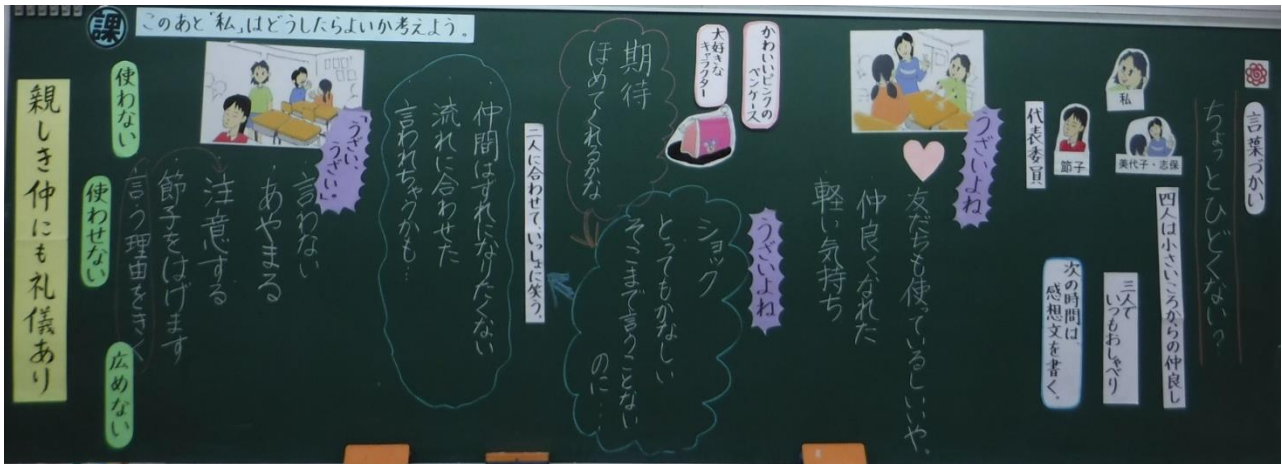 言葉づかい
ちょっとひどくない?
私
美代子・志保
節子
代表委員
四人は小さいころからの仲良し
三人で
いつもおしゃべり
次の時間は、
感想文を書く。
うざいよね
友だちも使っているしいいや。
仲良くなれた
軽い気持ち
かわいいピンクの
ペンケース
大好きな
キャラクター
期待
ほめてくれるかな
うざいよね
ショック
とってもかなしい
そこまで言うことない
のに…
二人に合わせて、いっしょに笑う。
仲間はずれになりたくない
流れに合わせた
言われちゃうかも…
課
このあと「私」はどうしたらよいか考えよう。
「うざい、
うざい」
言わない
あやまる
注意する
節子をはげます
言う理由をきく
使わない
使わせない
広めない
親しき仲にも礼儀あり